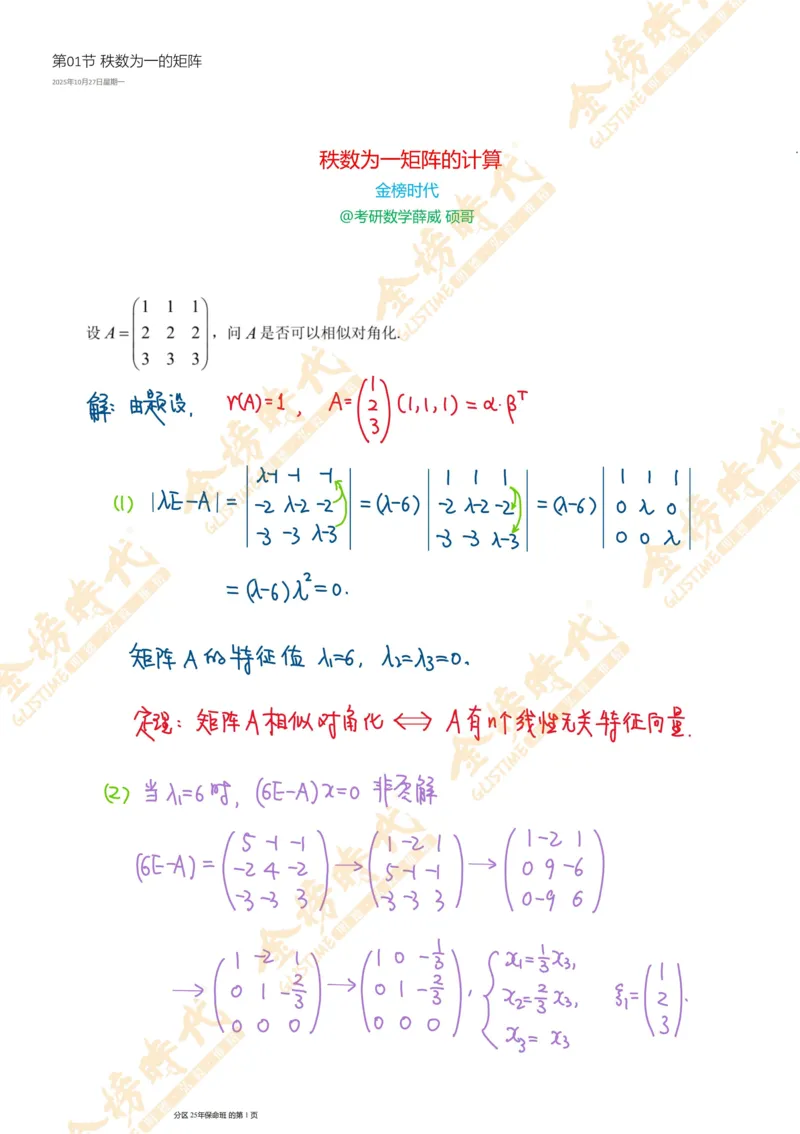 第01节 秩数为一的矩阵
2025年10月27日星期一
秩数为一矩阵的计算
金榜时代
@考研数学薛威 硕哥
设 A = (1 1 1; 2 2 2; 3 3 3), 问 A 是否可以相似对角化.
解: 由题设, r(A)=1, A=(1; 2; 3)(1,1,1) = α·β^T
(1) |λE-A| = |λ-1 -1 -1; -2 λ-2 -2; -3 -3 λ-3| = (λ-6) |1 1 1; -2 λ-2 -2; -3 -3 λ-3| = (λ-6) |1 1 1; 0 λ 0; 0 0 λ|
= (λ-6)λ²=0.
矩阵 A 的特征值 λ₁=6, λ₂=λ₃=0.
定理: 矩阵A相似对角化 ⟺ A有n个线性无关特征向量.
(2) 当λ₁=6时, (6E-A)x=0 非零解
(6E-A) = (5 -1 -1; -2 4 -2; -3 -3 3) → (1 -2 1; 5 -1 -1; -3 -3 3) → (1 -2 1; 0 9 -6; 0 -9 6)
→ (1 -2 1; 0 1 -2/3; 0 0 0) → (1 0 -1/3; 0 1 -2/3; 0 0 0), { x₁=1/3 x₃, x₂=2/3 x₃, x₃= x₃ ξ₁=(1; 2; 3).
分区 25年保命班 的第 1 页
金榜時代
GLISTIME